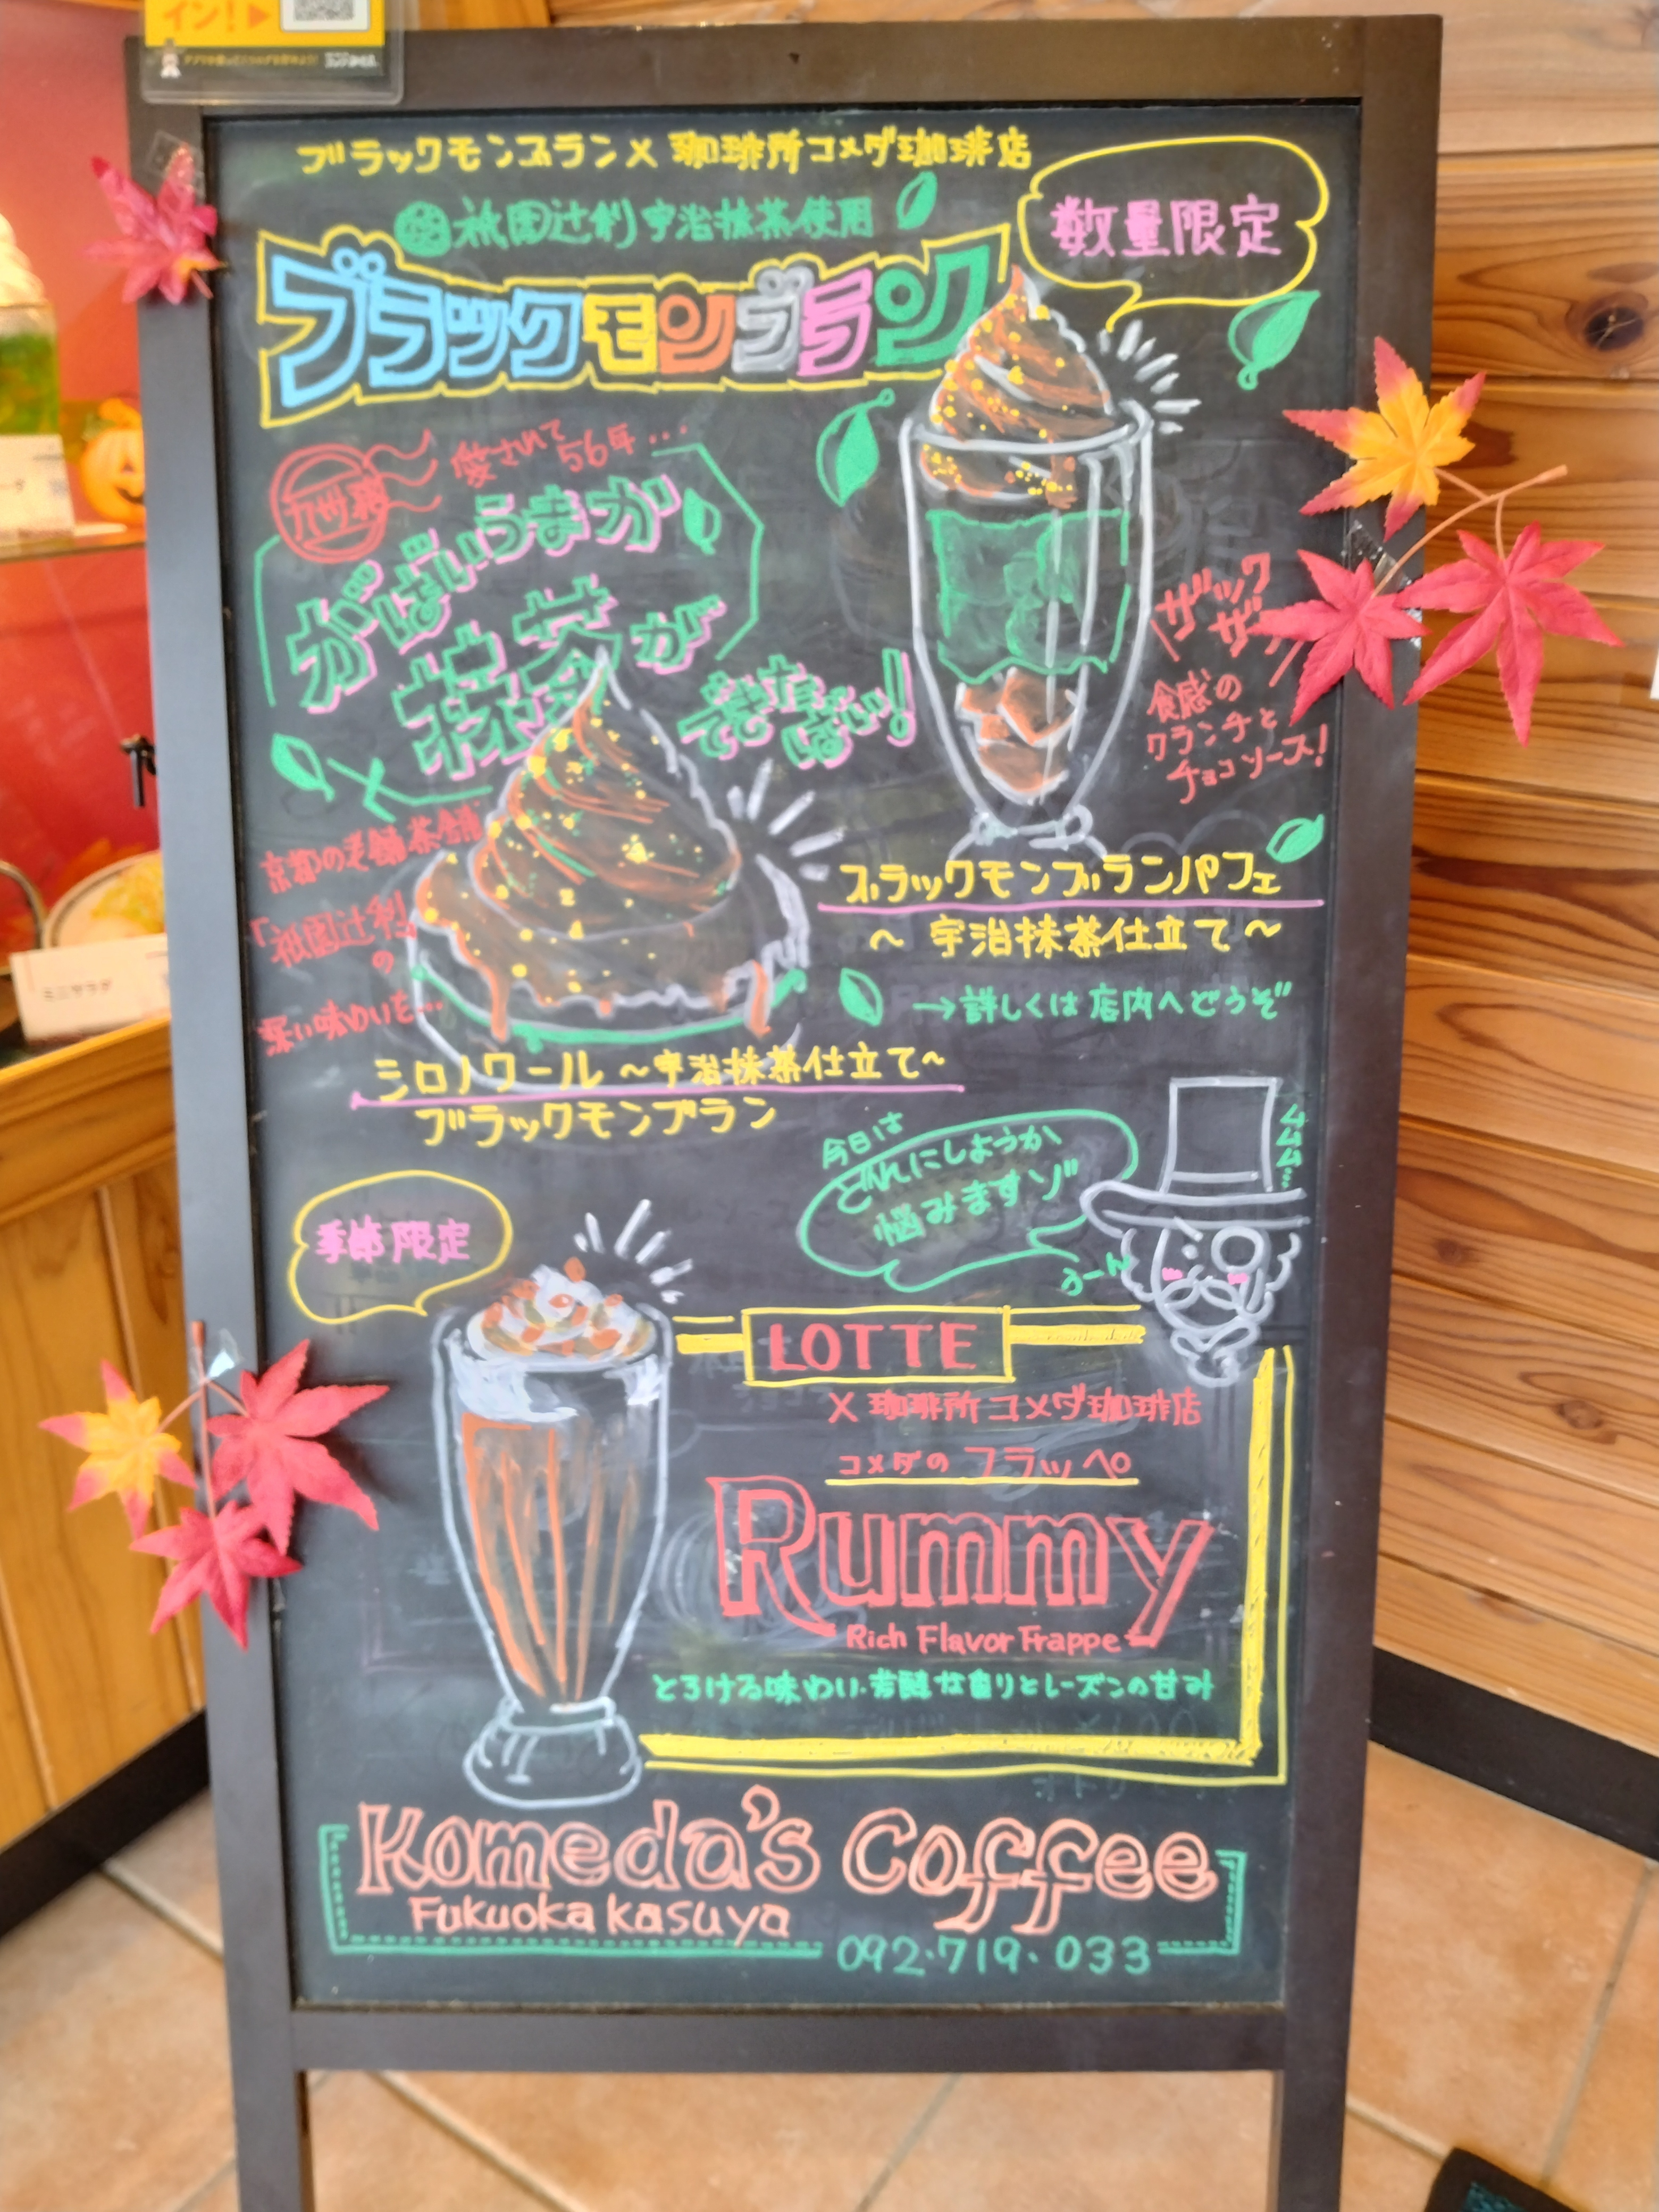 イン!▶
ブラックモンブラン×珈琲所コメダ珈琲店
祇園辻利宇治抹茶使用
数量限定
ブラックモンブラン
九州発
愛されて
56年...
がばいうまか
抹茶が
できたばい!
ザックザク
食感の
クランチと
チョコソース!
京都の老舗茶舗
「祇園辻利」
の
深い味わいを...
ブラックモンブランパフェ
~宇治抹茶仕立て~
→詳しくは店内へどうぞ
シロノワール~宇治抹茶仕立て~
ブラックモンブラン
今日は
どれにしようか
悩みますゾ
うーん
ムムム...
季節限定
LOTTE
×珈琲所コメダ珈琲店
コメダのフラッペ
Rummy
Rich Flavor Frappe
とろける味わい・芳醇な香りとレーズンの甘み
Komeda's Coffee
Fukuoka kasuya
092・719・033
ミニサラダ